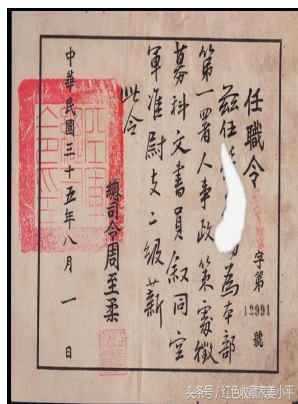 任職令
字第12991號
茲任
為本部
第一四署人事政策處徵
募科文書員敘同空
軍准尉支二級薪
此令
總司令周至柔
中華民國三十五年八月一日
头条号/红色收藏家姜小平